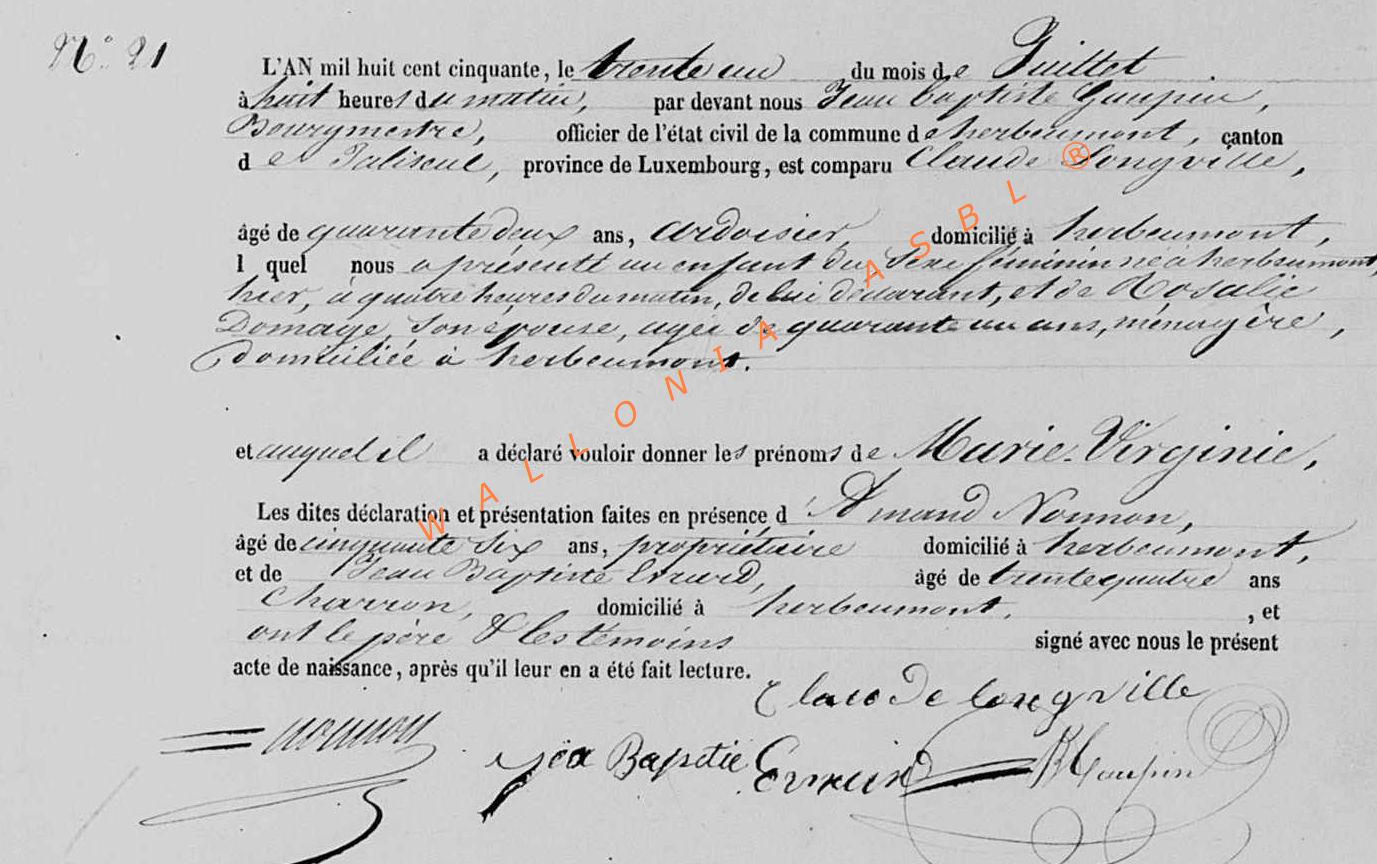 N.° 21
L'AN mil huit cent cinquante, le trente un du mois de Juillet
à huit heures du matin, par devant nous Jean baptiste Gaupin,
Bourgmestre, officier de l'état civil de la commune de herbeumont, canton
de Paliseul, province de Luxembourg, est comparu Claude Longville,
âgé de quarante deux ans, ardoisier, domicilié à herbeumont,
lequel nous a présenté un enfant du sexe féminin né à herbeumont,
hier, à quatre heures du matin, de lui déclarant, et de Rosalie
Domage, son épouse, agée de quarante un ans, ménagère,
domiciliée à herbeumont.
et auquel il a déclaré vouloir donner les prénoms de Marie-Virginie,
Les dites déclaration et présentation faites en présence d'Amand Nonnon,
âgé de cinquante six ans, propriétaire domicilié à herbeumont,
et de Jean Baptiste Evrard, âgé de trente quatre ans
charron, domicilié à herbeumont, , et
ont le père & les témoins signé avec nous le présent
acte de naissance, après qu'il leur en a été fait lecture.
Claude longville
nonnon
Baptie
Gaupin
WALLONIA ASBL ®